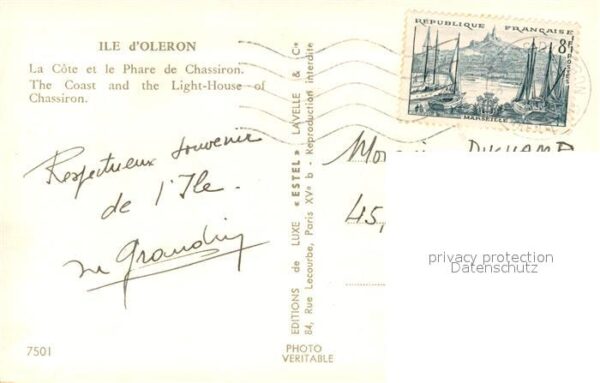 ILE d'OLERON
La Côte et le Phare de Chassiron.
The Coast and the Light-House of
Chassiron.
Respectueux souvenir
de l'Ile.
7501
EDITIONS de LUXE "ESTEL" LAVELLE & Cie
84, Rue Lecourbe, Paris XVe b - Reproduction interdite
PHOTO
VERITABLE
REPUBLIQUE FRANÇAISE
8F
POSTES
MARSEILLE
45,
privacy protection
Datenschutz